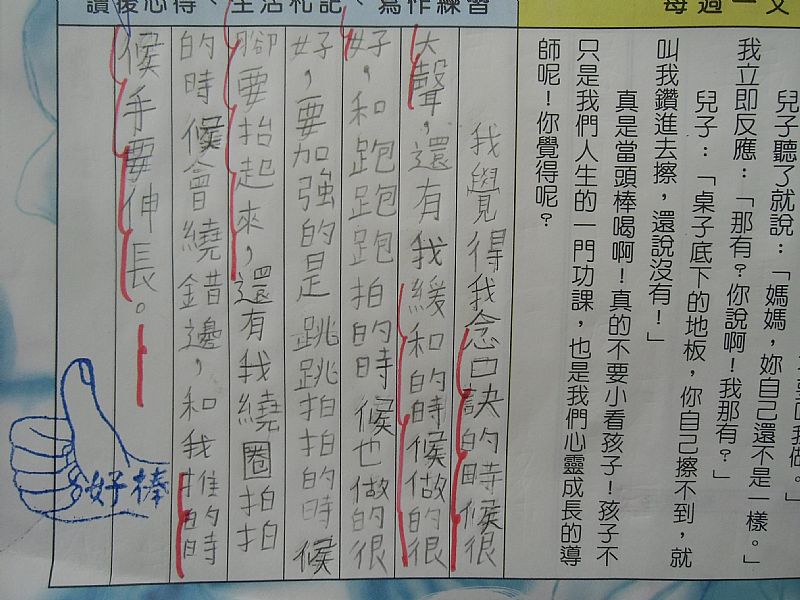 讀後心得、生活札記、寫作練習
每週一文
兒子聽了就說：「媽媽，妳自己還不是一樣。」
我立即反應：「那有？你說啊！我那有？」
兒子：「桌子底下的地板，你自己擦不到，就
叫我鑽進去擦，還說沒有！」
真是當頭棒喝啊！真的不要小看孩子！孩子不
只是我們人生的一門功課，也是我們心靈成長的導
師呢！你覺得呢？
我覺得我念口訣的時候很
大聲，還有我緩和的時候做的很
好，和跑跑跑拍的時候也做的很
好，要加強的是跳跳拍拍的時候
腳要抬起來，還有我繞圈拍拍
的時候會繞錯邊，和我推的時
候手要伸長。
好棒